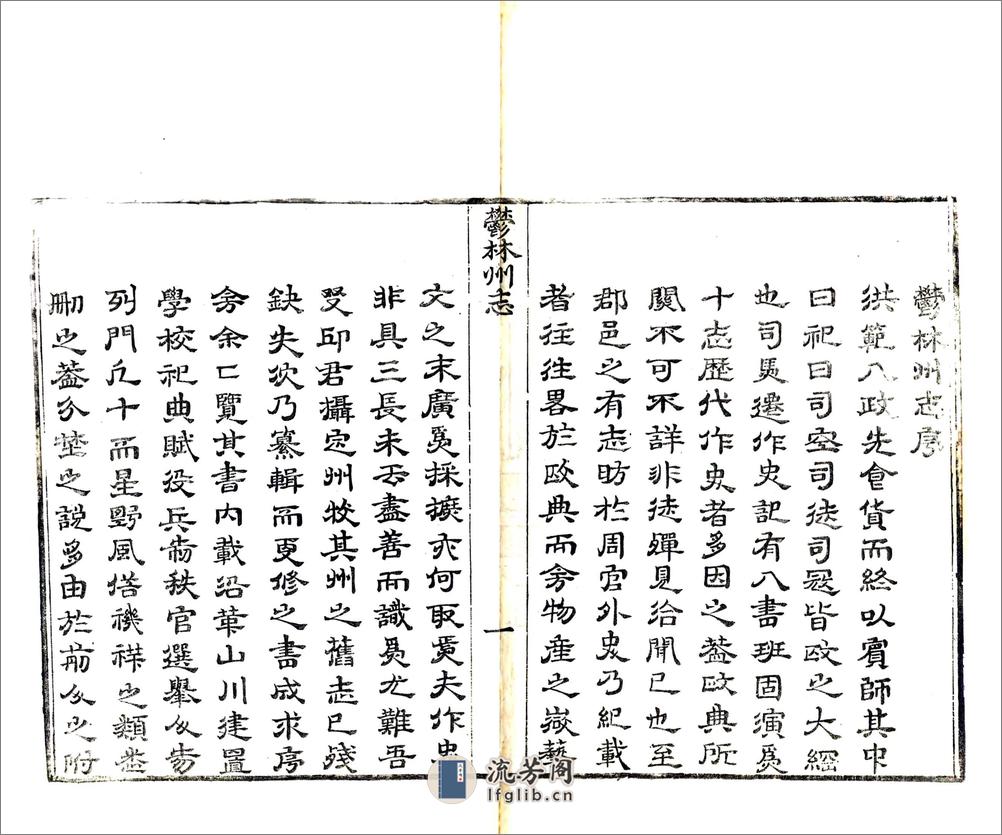 鬱林州志序
洪範八政先食貨而終以賓師其中
曰祀曰司空司徒司冦皆政之大經
也司馬遷作史記有八書班固演爲
十志歷代作史者多因之葢政典所
關不可不詳非徒殫見洽聞已也至
郡邑之有志昉於周官外史乃紀載
者往往畧於政典而務物産之嶶藝
鬱林州志
一
文之末廣爲採摭亦何取焉夫作史
非具三長未云盡善而識爲尤難吾
叕邱君攝官州牧其州之舊志已殘
缺失次乃纂輯而更修之書成求序
於余余已覽其書內載沿革山川建置
學校祀典賦役兵防秩官選舉人物
列門凡十而星野風俗禨祥之類悉
刪之葢分埜之說多由於前人之附
流芳阁
lfglib.cn